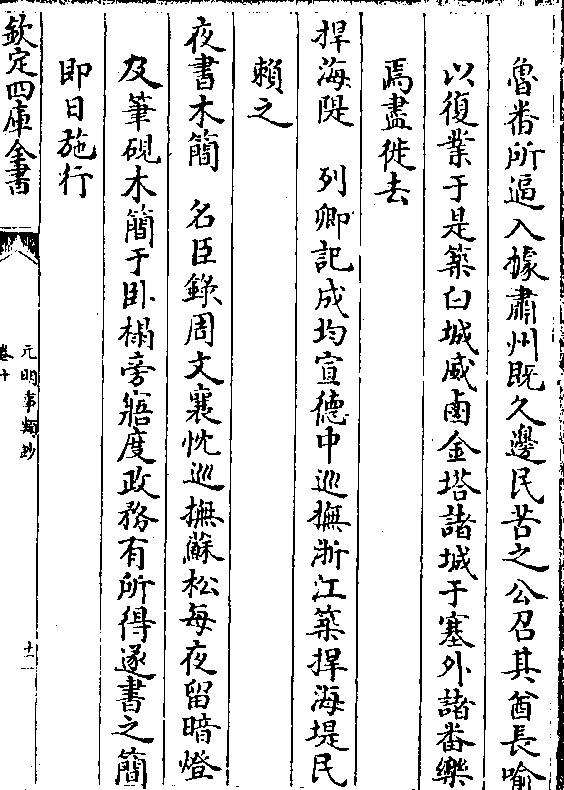 魯番所逼入據肅州既久邊民苦之公召其酋長喻
以復業于是築臼城威鹵金塔諸城于塞外諸番樂
焉盡徙去
捍海隄　列卿記成均宣德中巡撫浙江築捍海堤民
賴之
夜書木簡　名臣錄周文襄忱巡撫蘇松每夜留暗燈
及筆硯木簡于卧榻旁寤度政務有所得遂書之簡
即日施行
欽定四庫全書
元明事類鈔
卷十
十一